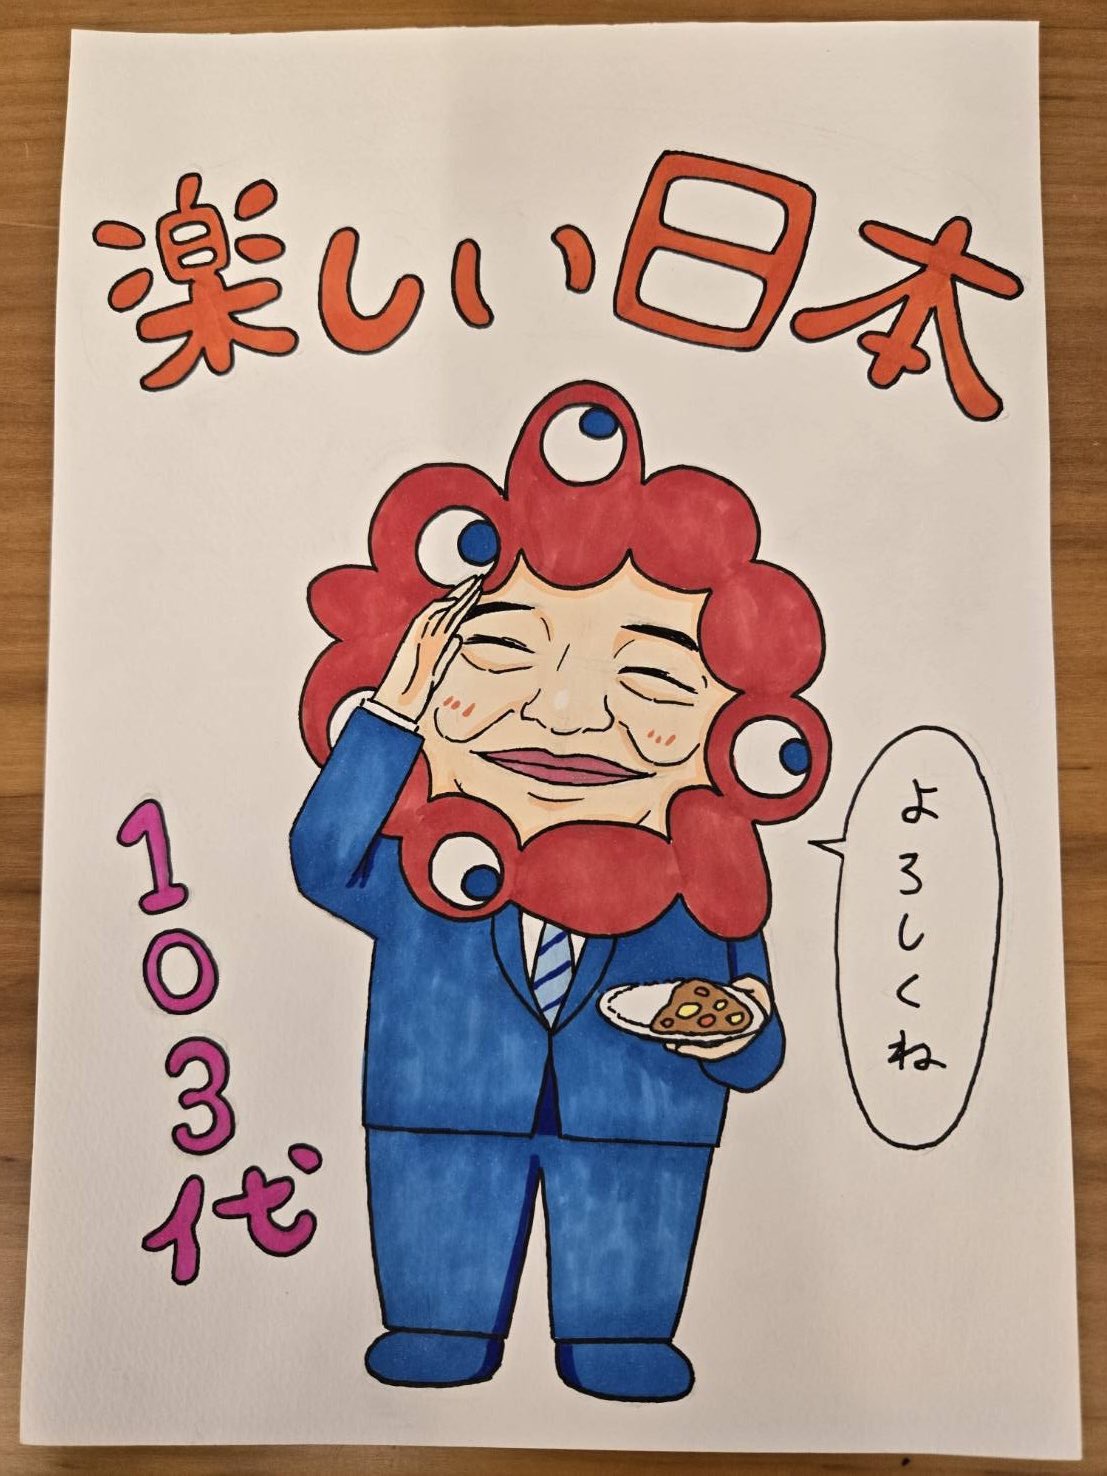 楽しい日本
103代
よろしくね